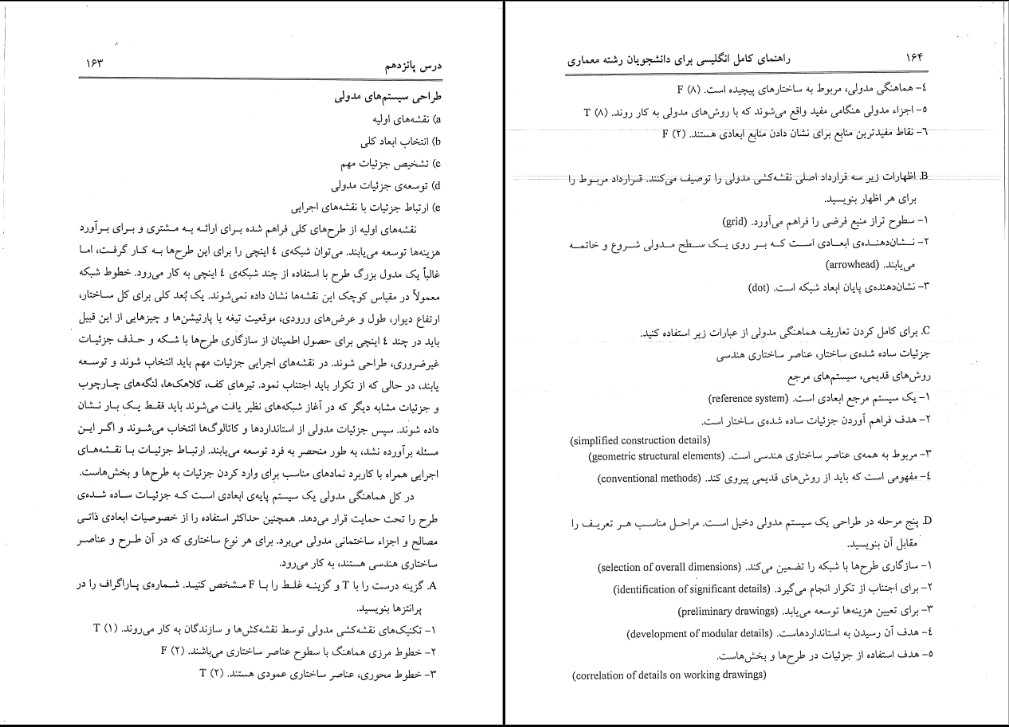 درس پانزدهم ۱۶۳
طراحی سیستم‌های مدولی
a) نقشه‌های اولیه
b) انتخاب ابعاد کلی
c) تشخیص جزئیات مهم
d) توسعه‌ی جزئیات مدولی
e) ارتباط جزئیات با نقشه‌های اجرایی
نقشه‌های اولیه از طرح‌های کلی فراهم شده برای ارائه به مشتری و برای برآورد
هزینه‌ها توسعه می‌یابند. می‌توان شبکه‌ی ٤ اینچی را برای این طرح‌ها به کار گرفت، اما
غالباً یک مدول بزرگ طرح با استفاده از چند شبکه‌ی ٤ اینچی به کار می‌رود. خطوط شبکه
معمولاً در مقیاس کوچک این نقشه‌ها نشان داده نمی‌شوند. یک بُعد کلی برای کل ساختار،
ارتفاع دیوار، طول و عرض‌های ورودی، موقعیت تیغه یا پارتیشن‌ها و چیزهایی از این قبیل
باید در چند ٤ اینچی برای حصول اطمینان از سازگاری طرح‌ها با شبکه و حذف جزئیات
غیرضروری، طراحی شوند. در نقشه‌های اجرایی جزئیات مهم باید انتخاب شوند و توسعه
یابند، در حالی که از تکرار باید اجتناب نمود. تیرهای کف، کلاهک‌ها، لنگه‌های چارچوب
و جزئیات مشابه دیگر که در آغاز شبکه‌های نظیر یافت می‌شوند باید فقط یک بار نشان
داده شوند. سپس جزئیات مدولی از استانداردها و کاتالوگ‌ها انتخاب می‌شوند و اگر این
مسئله برآورده نشد، به طور منحصر به فرد توسعه می‌یابند. ارتباط جزئیات با نقشه‌های
اجرایی همراه با کاربرد نمادهای مناسب برای وارد کردن جزئیات به طرح‌ها و بخش‌هاست.
در کل هماهنگی مدولی یک سیستم پایه‌ی ابعادی است که جزئیات ساده شده‌ی
طرح را تحت حمایت قرار می‌دهد. همچنین حداکثر استفاده را از خصوصیات ابعادی ذاتی
مصالح و اجزاء ساختمانی مدولی می‌برد. برای هر نوع ساختاری که در آن طرح و عناصر
ساختاری هندسی هستند، به کار می‌رود.
A. گزینه درست را با T و گزینه غلط را با F مشخص کنید. شماره‌ی پاراگراف را در
پرانتزها بنویسید.
۱- تکنیک‌های نقشه‌کشی مدولی توسط نقشه‌کش‌ها و سازندگان به کار می‌روند. (۱) T
۲- خطوط مرزی هماهنگ با سطوح عناصر ساختاری می‌باشند. (۲) F
۳- خطوط محوری، عناصر ساختاری عمودی هستند. (۲) T
۱۶۴ راهنمای کامل انگلیسی برای دانشجویان رشته معماری
٤- هماهنگی مدولی، مربوط به ساختارهای پیچیده است. (۸) F
٥- اجزاء مدولی هنگامی مفید واقع می‌شوند که با روش‌های مدولی به کار روند. (۸) T
٦- نقاط مفیدترین منابع برای نشان دادن منابع ابعادی هستند. (۲) F
B. اظهارات زیر سه قرارداد اصلی نقشه‌کشی مدولی را توصیف می‌کنند. قرارداد مربوط را
برای هر اظهار بنویسید.
۱- سطوح تراز منبع فرضی را فراهم می‌آورد. (grid)
۲- نشان‌دهنده‌ی ابعادی است که بر روی یک سطح مدولی شروع و خاتمه
می‌یابند. (arrowhead)
۳- نشان‌دهنده‌ی پایان ابعاد شبکه است. (dot)
C. برای کامل کردن تعاریف هماهنگی مدولی از عبارات زیر استفاده کنید.
جزئیات ساده شده‌ی ساختار، عناصر ساختاری هندسی
روش‌های قدیمی، سیستم‌های مرجع
۱- یک سیستم مرجع ابعادی است. (reference system)
۲- هدف فراهم آوردن جزئیات ساده شده‌ی ساختار است.
(simplified construction details)
۳- مربوط به همه‌ی عناصر ساختاری هندسی است. (geometric structural elements)
٤- مفهومی است که باید از روش‌های قدیمی پیروی کند. (conventional methods)
D. پنج مرحله در طراحی یک سیستم مدولی دخیل است. مراحل مناسب هر تعریف را
مقابل آن بنویسید.
۱- سازگاری طرح‌ها با شبکه را تضمین می‌کند. (selection of overall dimensions)
۲- برای اجتناب از تکرار انجام می‌گیرد. (identification of significant details)
۳- برای تعیین هزینه‌ها توسعه می‌یابد. (preliminary drawings)
٤- هدف آن رسیدن به استانداردهاست. (development of modular details)
٥- هدف استفاده از جزئیات در طرح‌ها و بخش‌هاست.
(correlation of details on working drawings)